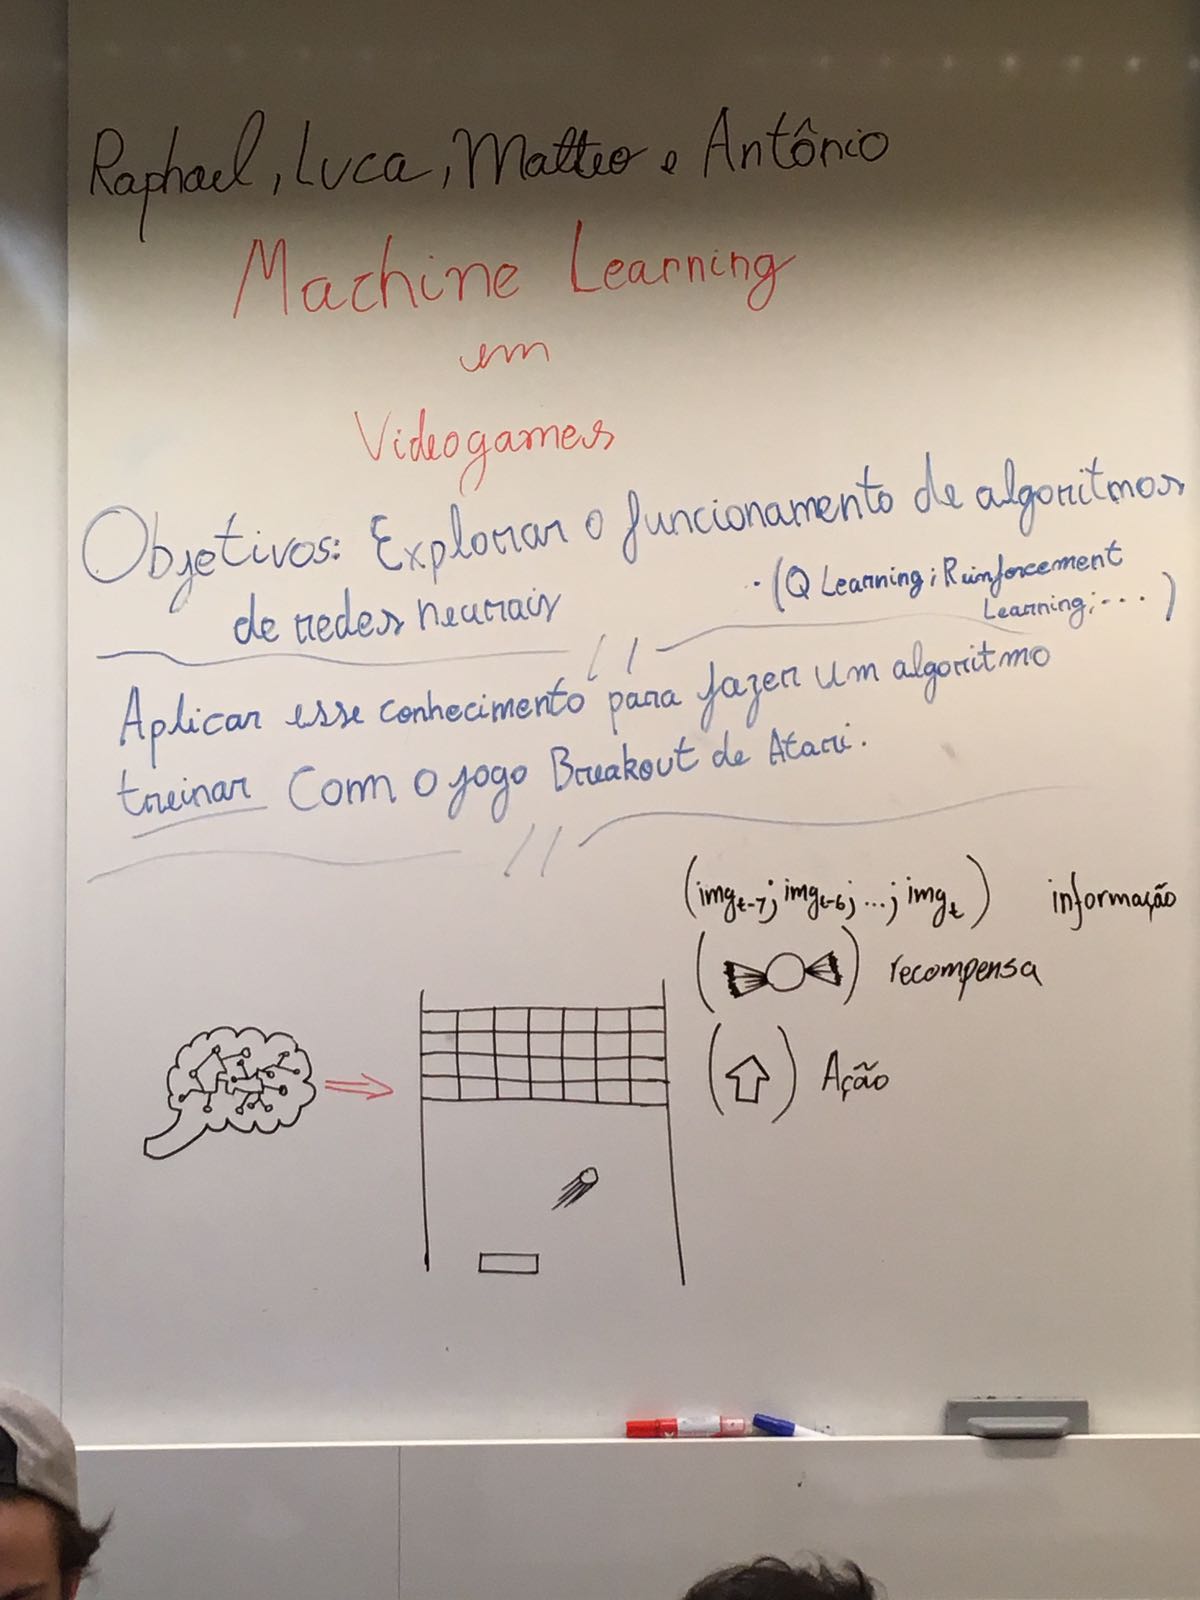 Raphael, Luca, Matteo e Antônio
Machine Learning
em
Videogames
Objetivos: Explorar o funcionamento de algoritmos
de redes neurais
• (Q Learning; Reinforcement
Learning; ... )
Aplicar esse conhecimento para fazer um algoritmo
treinar com o jogo Breakout de Atari.
(img t-7; img t-6; ...; img t) informação
recompensa
Ação